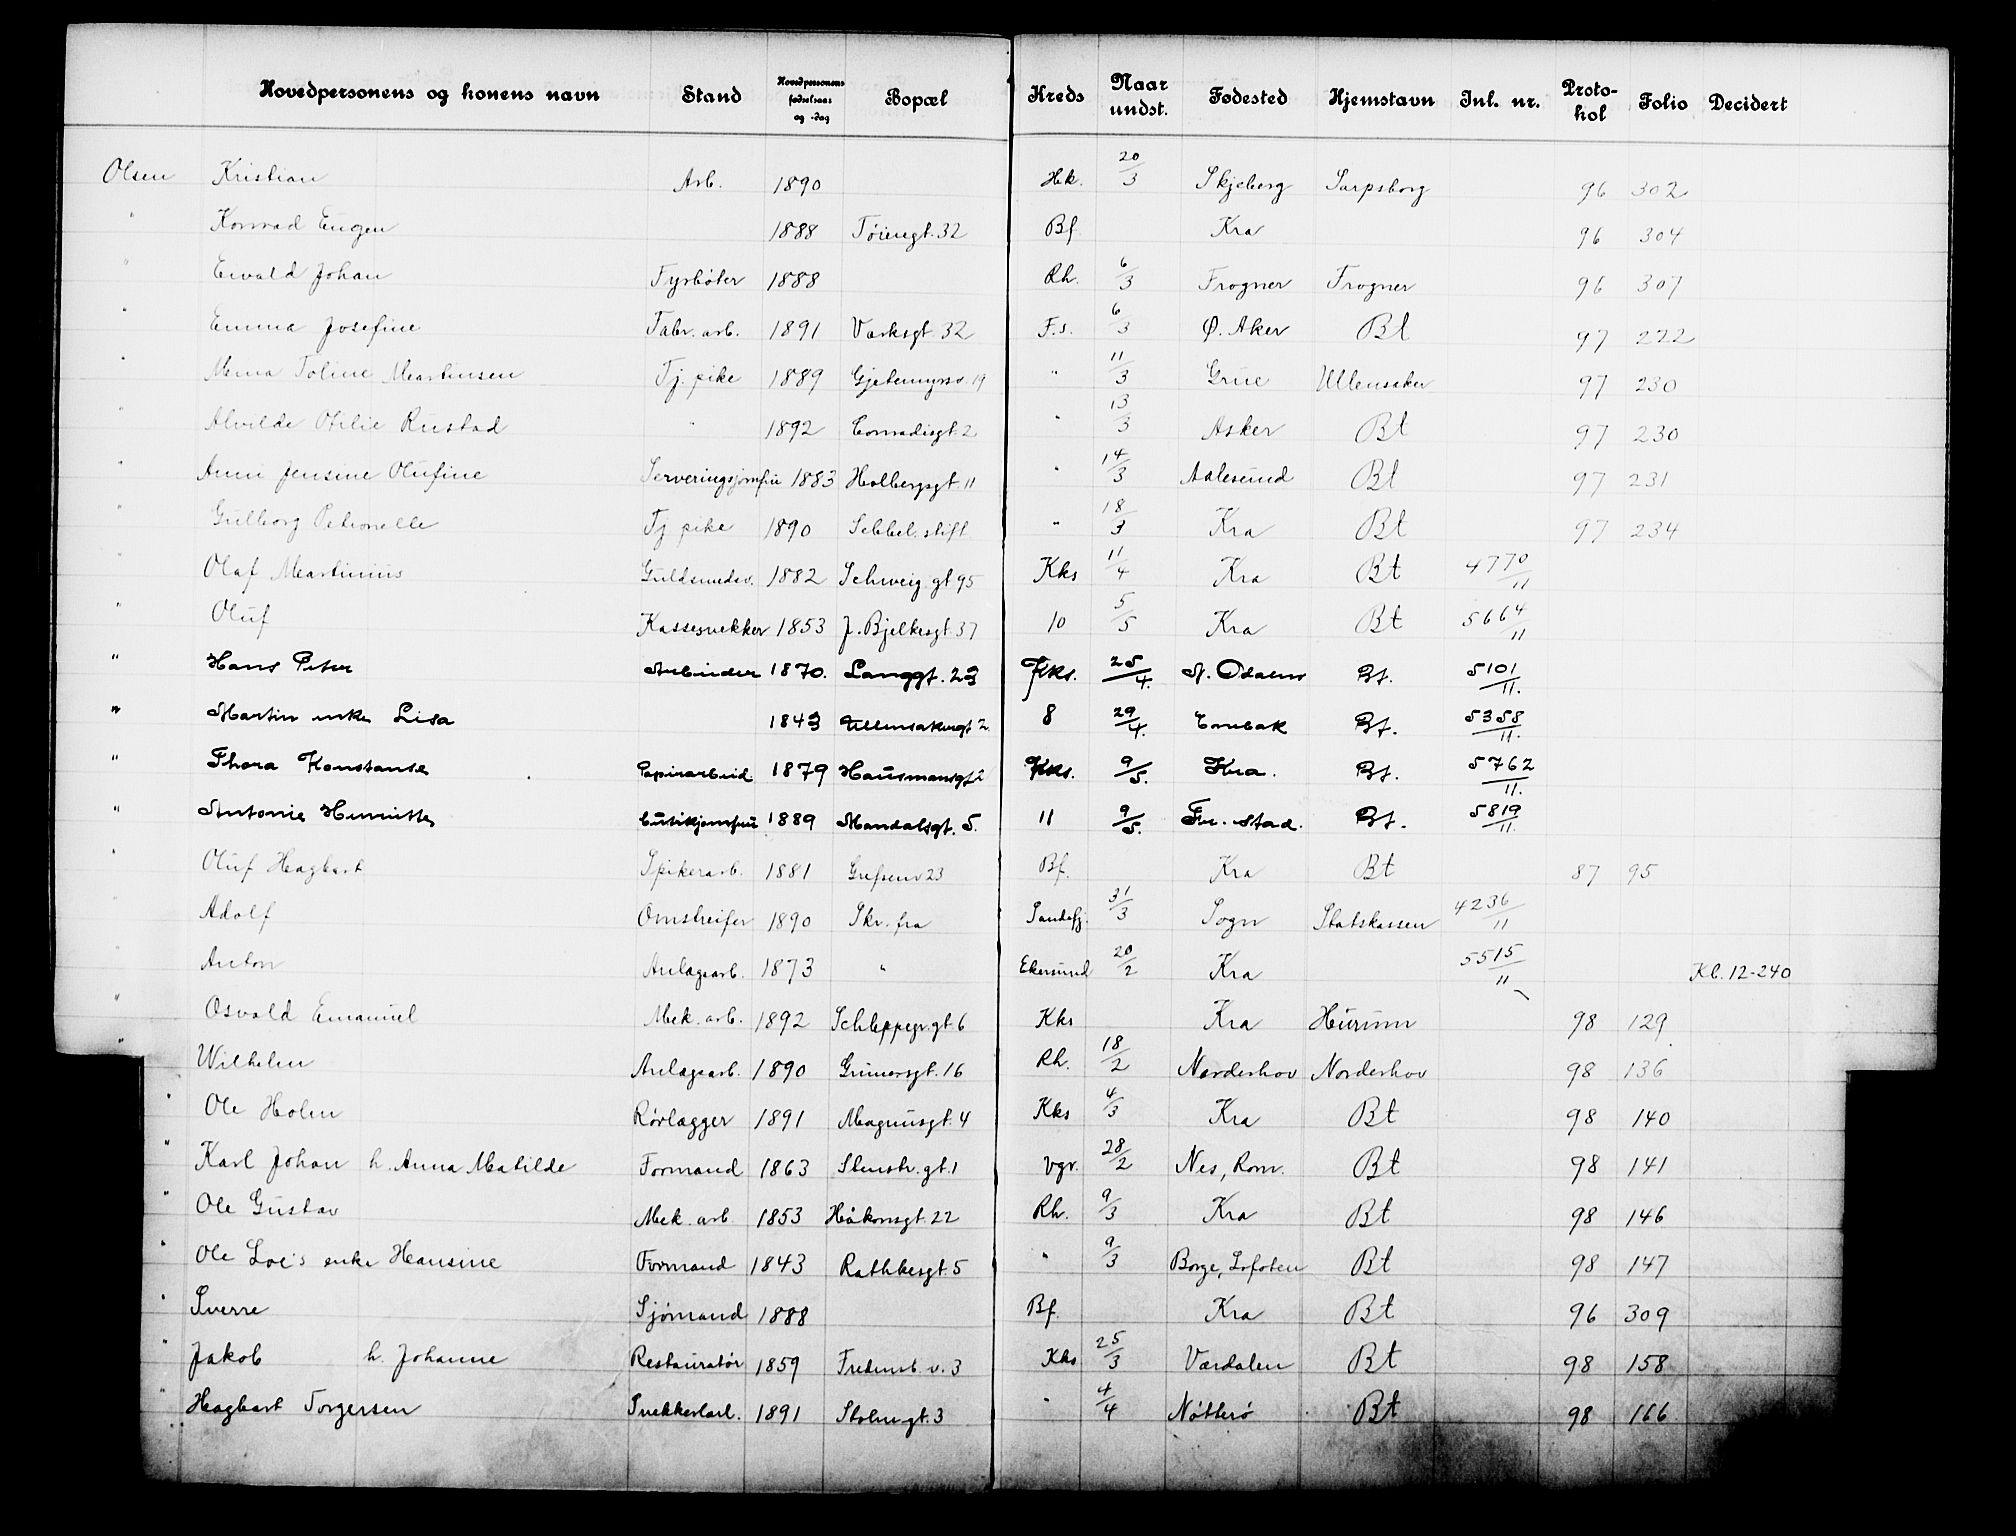 Hovedpersonens og konens navn Stand Hovedpersonens fødselsaar og -dag Bopæl Kreds Naar undst. Fødested Hjemstavn Inl. nr. Protokol Folio Decidert
Olsen Kristian Arb. 1890 Hk. 20/3 Skjeberg Sarpsborg 96 302
" Konrad Eugen 1888 Tøiengt. 32 Bf. Kra 96 304
" Ewald Johan Fyrbøter 1888 Rh. 6/3 Frogner Frogner 96 307
" Emma Josefine Fabr. arb. 1891 Verksgt. 32 F.s. 6/3 Ø. Aker Bt 97 222
" Mina Toline Martinsen Tj. pike 1889 Gjetemyrsv. 19 " 11/3 Grue Ullensaker 97 230
" Alvilde Otilie Rustad " 1892 Conradisgt. 2 " 13/3 Asker Bt 97 230
" Anni Jensine Olufine Serveringsjomfru 1883 Holbergsgt. 11 " 14/3 Aalesund Bt 97 231
" Gulborg Petronelle Tj pike 1890 Sebbel. stift " 18/3 Kra Bt 97 234
Olaf Martinius Guldsmedsv. 1882 Schweig. gt 95 Kks 11/4 Kra Bt 4770/11
" Oluf Kassesnekker 1853 J. Bjelkesgt. 37 10 5/5 Kra Bt 5664/11
" Hans Peter 1870. Langgt. 23 Kks. 25/4. N. Odalen Bt. 5101/11.
" Martin enke Lisa 1843 Ullensakergt 2. 8 29/4. Enebak Bt. 5358/11.
" Thora Konstanse Papirarbeid 1879 Hausmansgt 2 Kks. 9/5. Kra. Bt. 5762/11.
" Antonie Henriette Butikjomfru 1889 Mandalsgt. 5. 11 9/5. Fr. stad. Bt. 5819/11.
" Oluf Hagbart Spikerarb. 1881 Grefsenv 23 Bf. Kra Bt 87 95
" Adolf Omstreifer 1890 Skr. fra Sandefj. 31/3 Sogn Statskassen 4236/11
" Anton Anlægsarb. 1873 " Ekersund 20/2 Kra 5515/11 Kl. 12-240
" Osvald Emanuel Mek. arb. 1892 Schleppegr. gt. 6 Kks Kra Hurum 98 129
" Wilhelm Anlægsarb. 1890 Grünersgt. 16 Rh. 18/2 Norderhov Norderhov 98 136
" Ole Holm Rørlægger 1891 Magnusgt. 4 Kks 4/3 Kra Bt 98 140
" Karl Johan h. Anna Matilde Formand 1863 Stenstr. gt. 1 Vgr. 28/2 Nes, Rom. Bt 98 141
" Ole Gustav Mek. arb. 1853 Håkonsgt. 22 Rh. 9/3 Kra Bt 98 146
" Ole Loe's enke Hansine Formand 1843 Rathkesgt. 5 " 9/3 Borge, Lofoten Bt 98 147
" Sverre Sjømand 1888 Bf. Kra Bt 96 309
" Jakob h. Johanne Restauratør 1859 Fredensb. v. 3 Kks 25/3 Værdalen Bt 98 158
" Hagbart Torgersen Snekkerlærl. 1891 Stolm. gt. 3 " 4/4 Nøtterø Bt 98 166